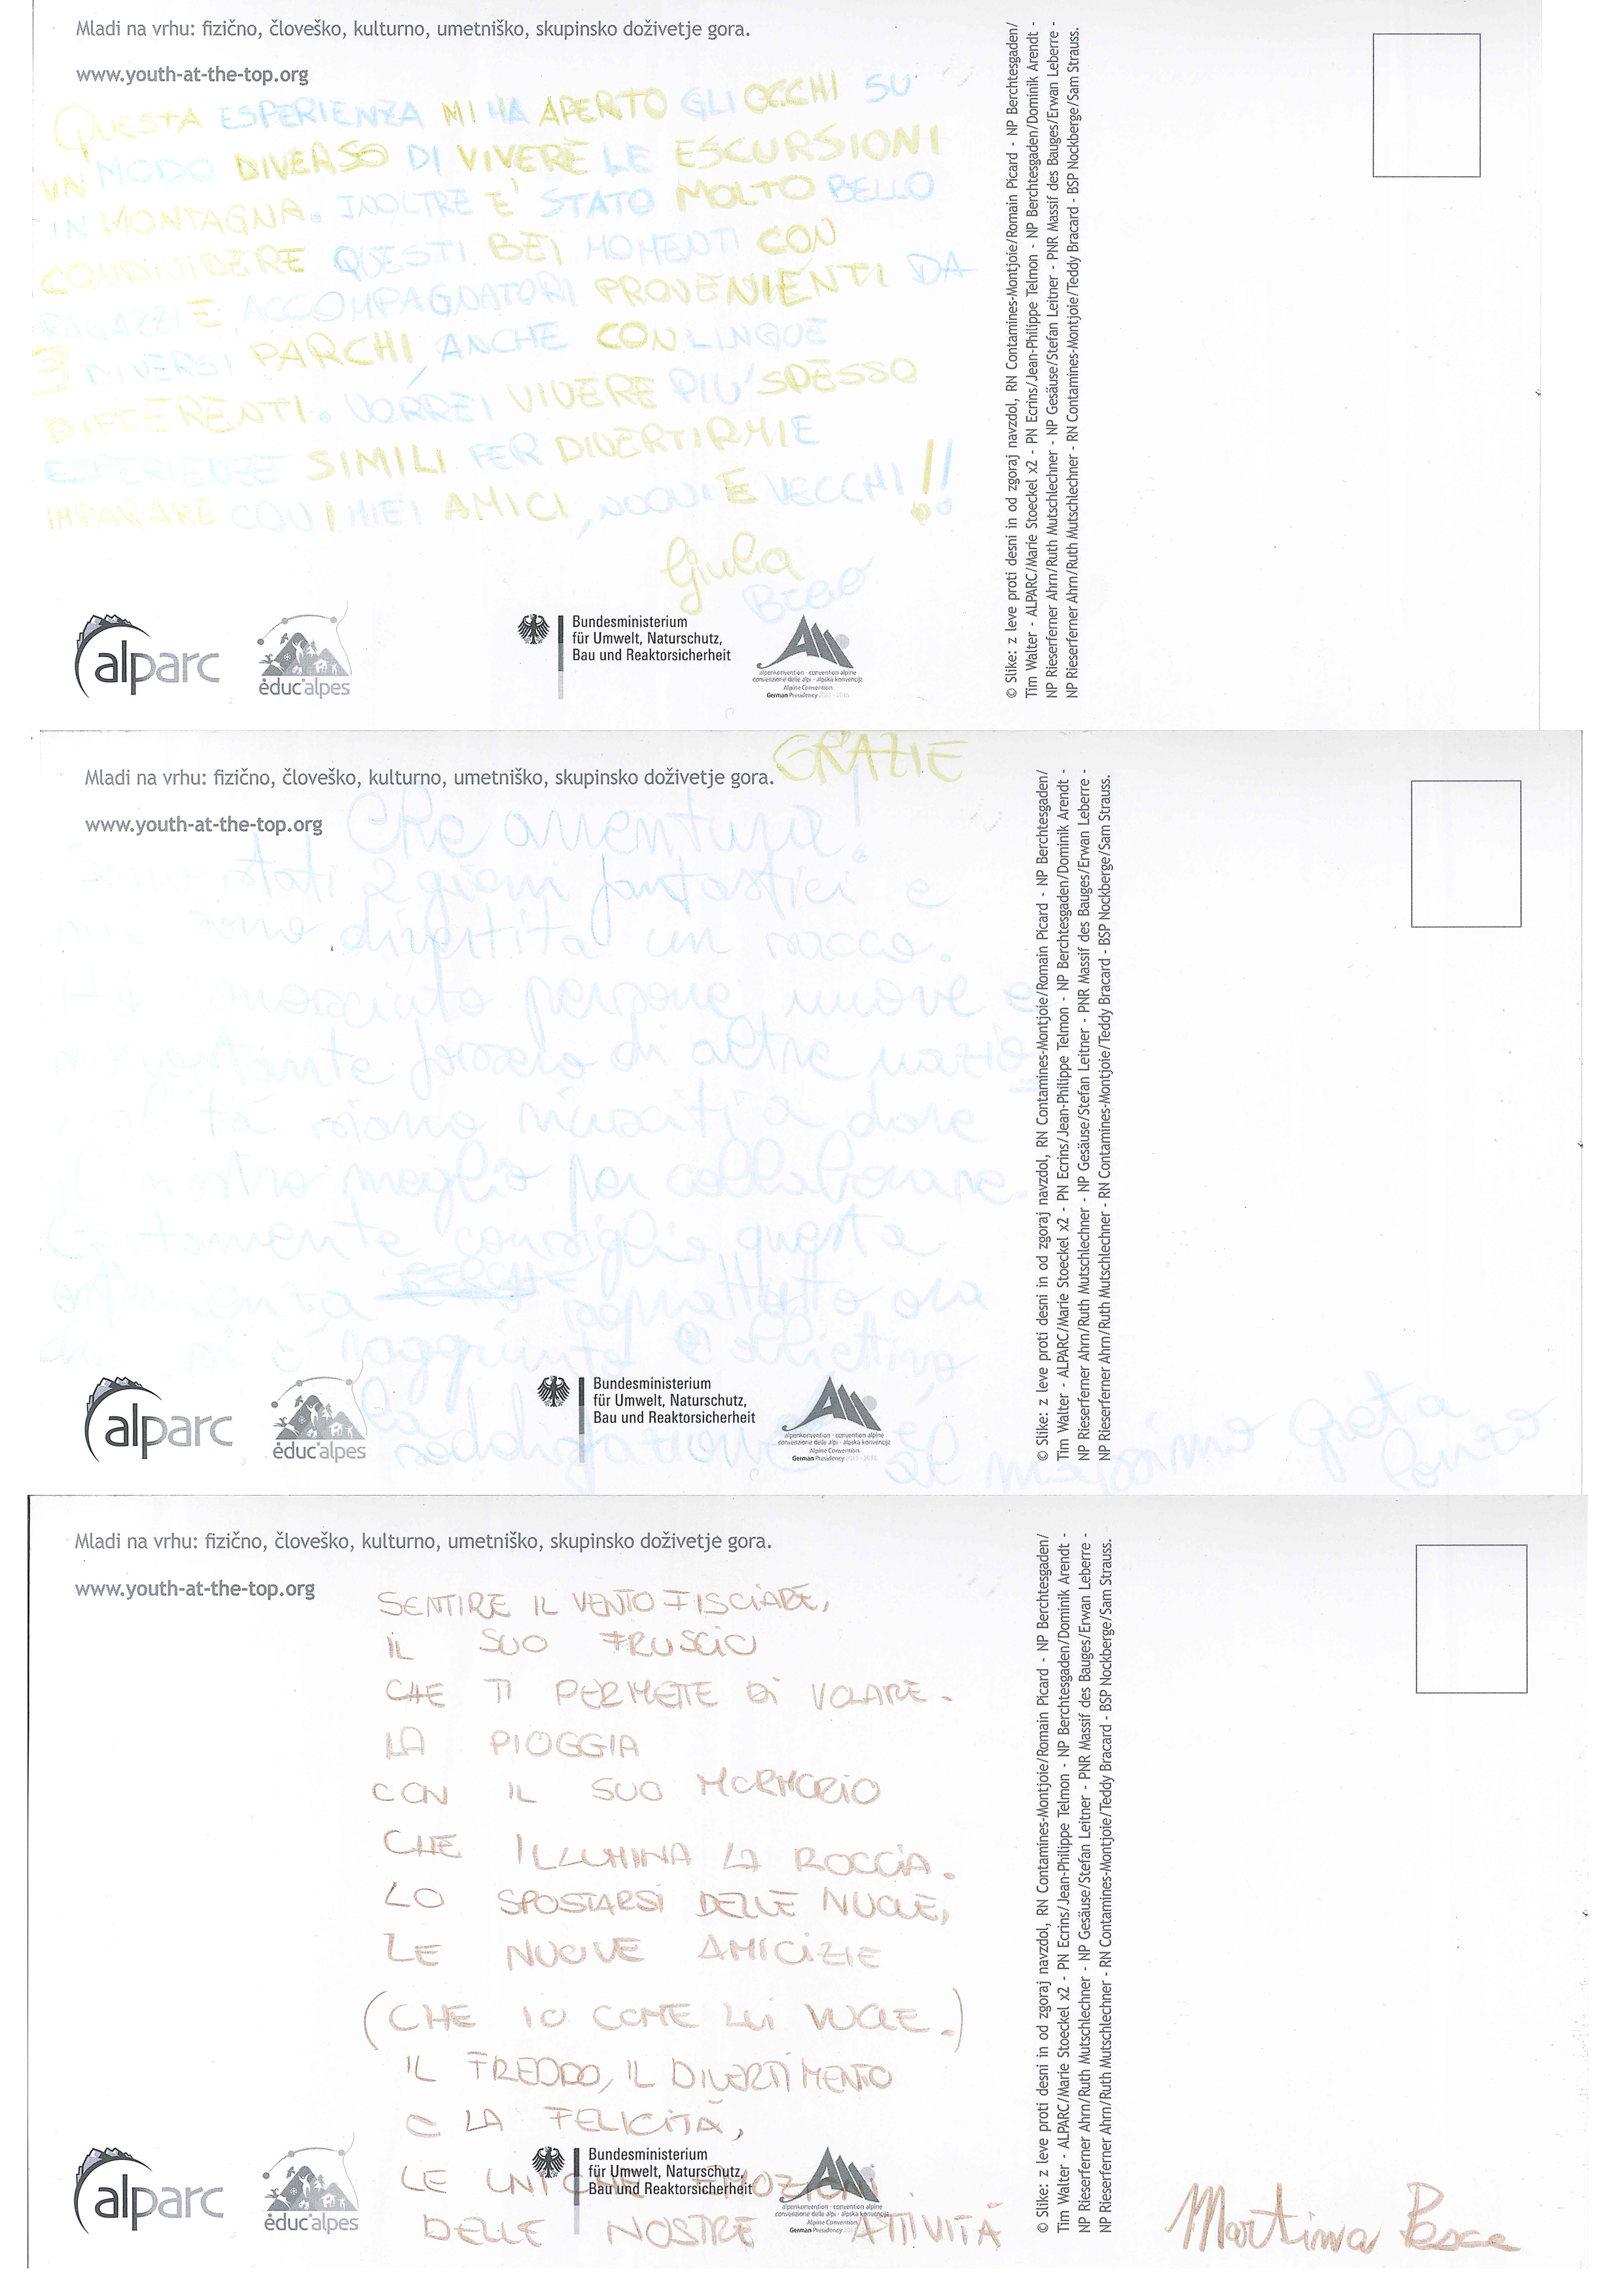 Mladi na vrhu: fizično, človeško, kulturno, umetniško, skupinsko doživetje gora.
www.youth-at-the-top.org
QUESTA ESPERIENZA MI HA APERTO GLI OCCHI SU
UN MODO DIVERSO DI VIVERE LE ESCURSIONI
IN MONTAGNA. INOLTRE E' STATO MOLTO BELLO
CONDIVIDERE QUESTI BEI MOMENTI CON
RAGAZZI E ACCOMPAGNATORI PROVENIENTI DA
3 DIVERSI PARCHI, ANCHE CON LINGUE
DIFFERENTI. VORREI VIVERE PIU' SPESSO
ESPERIENZE SIMILI PER DIVERTIRMI E
IMPARARE CON I MIEI AMICI, NUOVI E VECCHI!!
Giulia
alparc
éduc'alpes
Bundesministerium
für Umwelt, Naturschutz,
Bau und Reaktorsicherheit
alpenkonvention · convention alpine
convenzione delle alpi · alpska konvencija
Alpine Convention
German Presidency 2015 - 2016
© Slike: z leve proti desni in od zgoraj navzdol, RN Contamines-Montjoie/Romain Picard - NP Berchtesgaden/
Tim Walter - ALPARC/Marie Stoeckel x2 - PN Ecrins/Jean-Philippe Telmon - NP Berchtesgaden/Dominik Arendt -
NP Rieserferner Ahrn/Ruth Mutschlechner - NP Gesäuse/Stefan Leitner - PNR Massif des Bauges/Erwan Leberre -
NP Rieserferner Ahrn/Ruth Mutschlechner - RN Contamines-Montjoie/Teddy Bracard - BSP Nockberge/Sam Strauss.
GRAZIE
Mladi na vrhu: fizično, človeško, kulturno, umetniško, skupinsko doživetje gora.
www.youth-at-the-top.org
Che avventura!
Sono stati 2 giorni fantastici e
mi sono divertita un sacco.
Ho conosciuto persone nuove e
nonostante fossero di altre nazio
nalità siamo riusciti a dare
il nostro meglio per collaborare.
Certamente consiglio questa
esperienza soprattutto ora
che si è raggiunto l'obiettivo
al massimo Greta
alparc
éduc'alpes
Bundesministerium
für Umwelt, Naturschutz,
Bau und Reaktorsicherheit
alpenkonvention · convention alpine
convenzione delle alpi · alpska konvencija
Alpine Convention
German Presidency 2015 - 2016
© Slike: z leve proti desni in od zgoraj navzdol, RN Contamines-Montjoie/Romain Picard - NP Berchtesgaden/
Tim Walter - ALPARC/Marie Stoeckel x2 - PN Ecrins/Jean-Philippe Telmon - NP Berchtesgaden/Dominik Arendt -
NP Rieserferner Ahrn/Ruth Mutschlechner - NP Gesäuse/Stefan Leitner - PNR Massif des Bauges/Erwan Leberre -
NP Rieserferner Ahrn/Ruth Mutschlechner - RN Contamines-Montjoie/Teddy Bracard - BSP Nockberge/Sam Strauss.
Mladi na vrhu: fizično, človeško, kulturno, umetniško, skupinsko doživetje gora.
www.youth-at-the-top.org
SENTIRE IL VENTO FISCIARE,
IL SUO FRUSCIO
CHE TI PERMETTE DI VOLARE.
LA PIOGGIA
CON IL SUO MORMORIO
CHE ILLUMINA LA ROCCIA.
LO SPOSTARSI DELLE NUOLE,
LE NUOVE AMICIZIE
(CHE IO COME LUI VUOLE.)
IL FREDDO, IL DIVERTIMENTO
E LA FELICITÀ,
LE UNICHE EMOZIONI
DELLE NOSTRE ATTIVITÀ
Martina Pesce
alparc
éduc'alpes
Bundesministerium
für Umwelt, Naturschutz,
Bau und Reaktorsicherheit
alpenkonvention · convention alpine
convenzione delle alpi · alpska konvencija
Alpine Convention
German Presidency
© Slike: z leve proti desni in od zgoraj navzdol, RN Contamines-Montjoie/Romain Picard - NP Berchtesgaden/
Tim Walter - ALPARC/Marie Stoeckel x2 - PN Ecrins/Jean-Philippe Telmon - NP Berchtesgaden/Dominik Arendt -
NP Rieserferner Ahrn/Ruth Mutschlechner - NP Gesäuse/Stefan Leitner - PNR Massif des Bauges/Erwan Leberre -
NP Rieserferner Ahrn/Ruth Mutschlechner - RN Contamines-Montjoie/Teddy Bracard - BSP Nockberge/Sam Strauss.